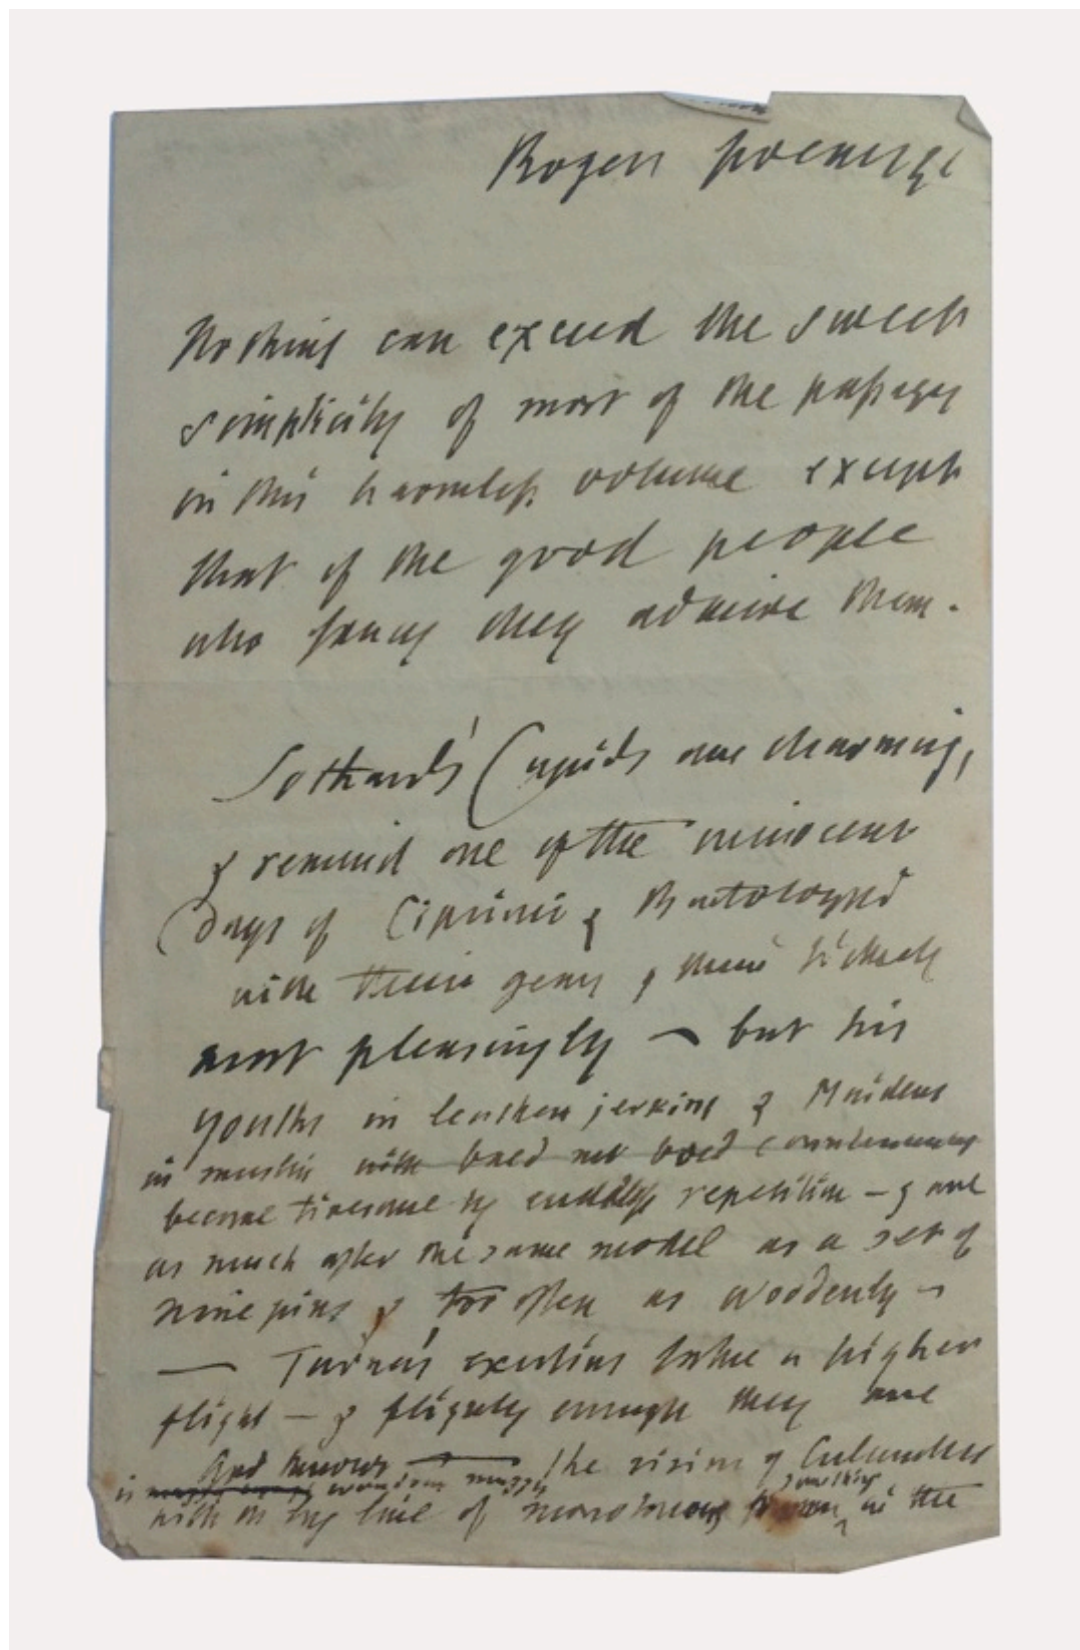 Rogers poems
Nothing can exceed the sweet
simplicity of most of the passages
in this harmless volume except
that of the good people
who fancy they admire them.
Sothard's Cupids are charming,
& remind one of the innocent
Days of Cipriani & Bartolozzi
with their gems &
most pleasingly — but his
youths in leathern jerkins & Maidens
in muslin with bred not
become tiresome by endless repetition — & are
as much after the same model as a set of
nine pins & too often as woodenly –
— Turner's take a higher
flight — & flighty enough they are
God knows — the vision of Columbus
is wondrous muggy
with big line of something in the